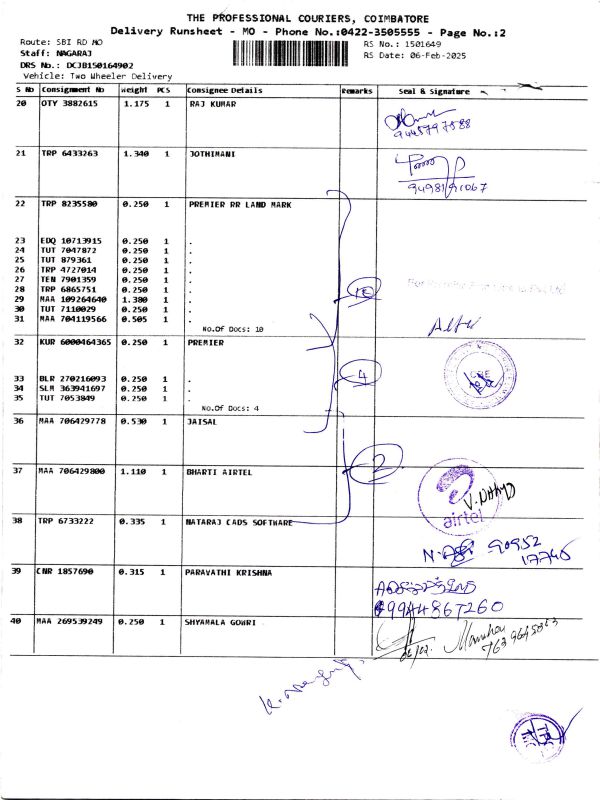 THE PROFESSIONAL COURIERS, COIMBATORE
Delivery Runsheet - MO - Phone No.:0422-3505555 - Page No.:2
Route: SBI RD MO
RS No.: 1501649
Staff: NAGARAJ
RS Date: 06-Feb-2025
DRS No.: DCJB150164902
Vehicle: Two Wheeler Delivery
S No Consignment No Weight PCS Consignee Details Remarks Seal & Signature
20 OTY 3882615 1.175 1 RAJ KUMAR
9445797588
21 TRP 6433263 1.340 1 JOTHIMANI
9498191067
22 TRP 8235580 0.250 1 PREMIER RR LAND MARK
23 EDQ 10713915 0.250 1 .
24 TUT 7047872 0.250 1 .
25 TUT 879361 0.250 1 .
26 TRP 4727014 0.250 1 .
27 TEN 7901359 0.250 1 .
28 TRP 6865751 0.250 1 .
29 MAA 109264640 1.380 1 .
30 TUT 7110029 0.250 1 .
31 MAA 704119566 0.505 1 .
10
No.Of Docs: 10
32 KUR 6000464365 0.250 1 PREMIER
33 BLR 270216093 0.250 1 .
34 SLM 363941697 0.250 1 .
35 TUT 7053849 0.250 1 .
4
No.Of Docs: 4
36 MAA 706429778 0.530 1 JAISAL
37 MAA 706429800 1.110 1 BHARTI AIRTEL
2
V. DHAYD
airtel
38 TRP 6733222 0.335 1 NATARAJ CADS SOFTWARE
90952
17745
39 CNR 1857690 0.315 1 PARAVATHI KRISHNA
9944867260
40 MAA 269539249 0.250 1 SHYAMALA GOWRI
7639645853